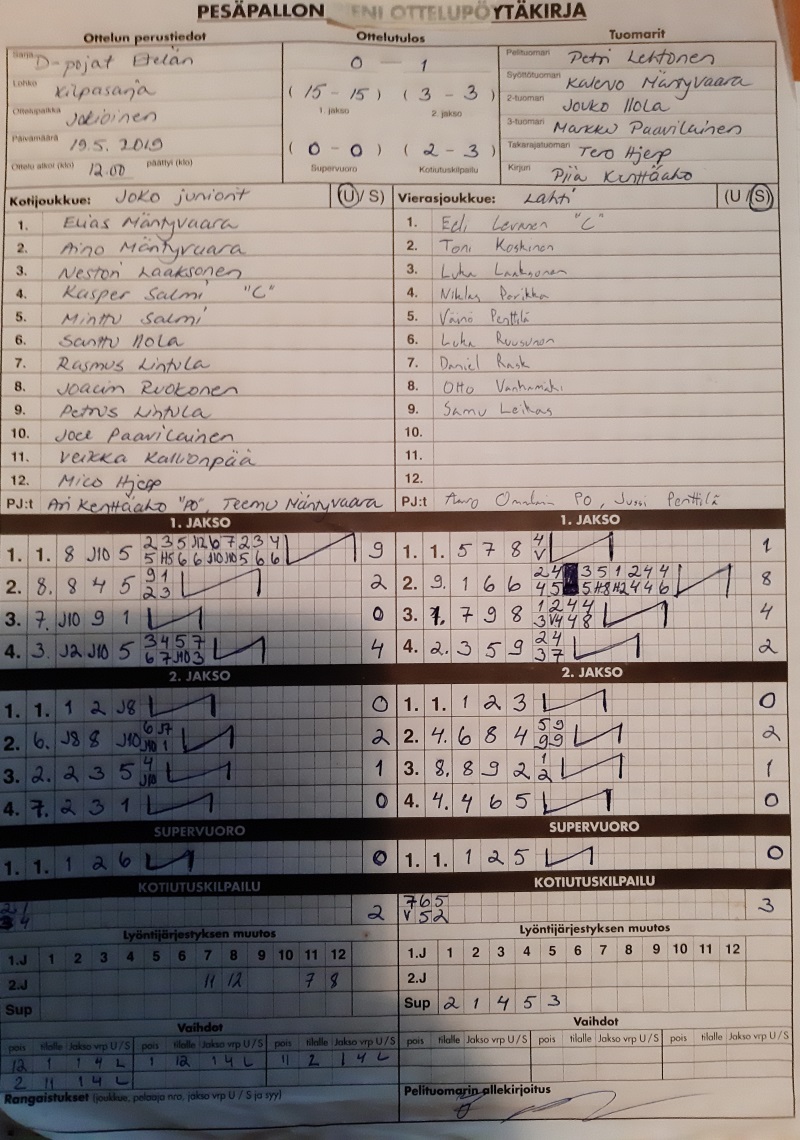 PESÄPALLON ENI OTTELUPÖYTÄKIRJA
Ottelun perustiedot
Sarja D-pojat Etelän
Lohko Kilpasarja
Ottelupaikka Jokioinen
Päivämäärä 19.5.2019
Ottelu alkoi (klo) 12.00 päättyi (klo)
Ottelutulos
0 — 1
( 15 - 15 ) ( 3 - 3 )
1. jakso 2. jakso
( 0 - 0 ) ( 2 - 3 )
Supervuoro Kotiutuskilpailu
Tuomarit
Pelituomari Petri Lehtonen
Syöttötuomari Kalervo Mäntyvaara
2-tuomari Jouko Ilola
3-tuomari Markku Paavilainen
Takarajatuomari Tero Hjerp
Kirjuri Piia Kenttäaho
Kotijoukkue: Joko juniorit (U/S)
1. Elias Mäntyvaara
2. Aino Mäntyvaara
3. Nestori Laaksonen
4. Kasper Salmi "C"
5. Minttu Salmi
6. Santtu Ilola
7. Rasmus Lintula
8. Joacim Ruokonen
9. Petrus Lintula
10. Joel Paavilainen
11. Veikka Kallionpää
12. Mico Hjerp
PJ:t Ari Kenttäaho "PO", Teemu Mäntyvaara
Vierasjoukkue: Lahti (U/S)
1. Eeli Levanen "C"
2. Toni Koskinen
3. Luka Laaksonen
4. Niklas Parikka
5. Väinö Penttilä
6. Luka Ruusunen
7. Daniel Rask
8. Otto Vanhamäki
9. Samu Leikas
10.
11.
12.
PJ:t PO, Jussi Penttilä
1. JAKSO
1. 1. 8 J10 5 2 3 5 J12 6 7 2 3 4 9
5 H5 6 6 J10 J10 5 6 6
2. 8. 8 4 5 9 1 2
2 3
3. 7. J10 9 1 0
4. 3. J2 J10 5 3 4 5 7 4
6 7 J10 3
2. JAKSO
1. 1. 1 2 J8 0
2. 6. J8 8 J10 6 J7 2
J10 1
3. 2. 2 3 5 4 1
J10
4. 7. 2 3 1 0
SUPERVUORO
1. 1. 1 2 6 0
KOTIUTUSKILPAILU
2 1 2
3 4
Lyöntijärjestyksen muutos
1.J 1 2 3 4 5 6 7 8 9 10 11 12
2.J 11 12 7 8
Sup
Vaihdot
pois tilalle Jakso vrp U/S pois tilalle Jakso vrp U/S pois tilalle Jakso vrp U/S
12 1 1 4 L 1 12 1 4 L 11 2 1 4 L
2 11 1 4 L
Rangaistukset (joukkue, pelaaja nro, jakso vrp U / S ja syy)
1. JAKSO
1. 1. 5 7 8 4 1
V
2. 9. 1 6 6 2 4 3 5 1 2 4 4 8
4 5 5 H8 H2 4 4 6
3. 1. 7 9 8 1 2 4 4 4
3 V4 4 8
4. 2. 3 5 9 2 4 2
3 7
2. JAKSO
1. 1. 1 2 3 0
2. 4. 6 8 4 5 9 2
9 9
3. 8. 8 9 2 1 1
2
4. 4. 4 6 5 0
SUPERVUORO
1. 1. 1 2 5 0
KOTIUTUSKILPAILU
7 6 5 3
V 5 2
Lyöntijärjestyksen muutos
1.J 1 2 3 4 5 6 7 8 9 10 11 12
2.J
Sup 2 1 4 5 3
Vaihdot
pois tilalle Jakso vrp U/S pois tilalle Jakso vrp U/S pois tilalle Jakso vrp U/S
Pelituomarin allekirjoitus